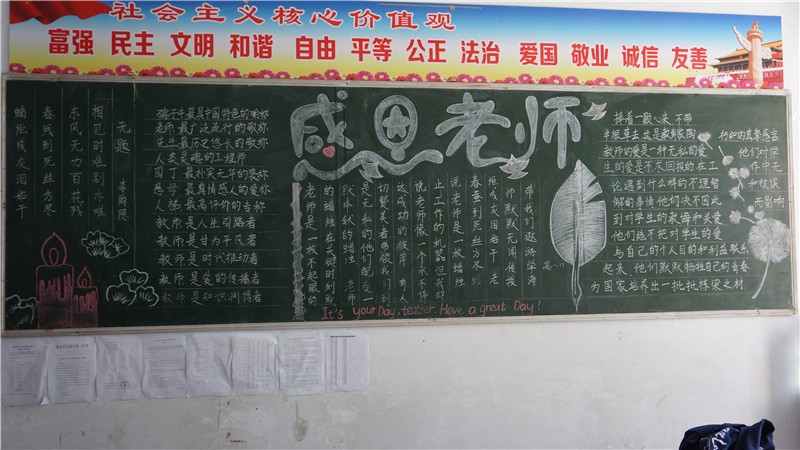 社会主义核心价值观
富强 民主 文明 和谐 自由 平等 公正 法治 爱国 敬业 诚信 友善
无题
李商隐
相见时难别亦难
东风无力百花残
春蚕到死丝方尽
蜡炬成灰泪始干
孺子牛最具中国特色的喻称
老师最广泛流行的敬称
先生最历史悠久的敬称
人类灵魂的工程师
园丁最朴实无华的褒称
慈母最真情感人的爱称
人梯最高评价的专称
教师是人生引路者
教师是甘为平凡者
教师是时代推动者
教师是爱的传播者
教师是知识渊博者
感恩老师
带我们遨游学海
师默默无闻传授
炬成灰泪始干,老
春蚕到死丝方尽蜡
说老师是一枚蜡烛
止工作的机器但我却
说老师像一个永不停
达成功的彼岸 有人
切赞美者带领我们到
是无私的他们配受一
默奉献的蜡烛 老师
的蜡烛在关键时刻默
老师是一枚不起眼的
It's your Day, teacher. Have a great Day!
捧着一颗心来,不带
半根草去这是教育家陶行知的真挚感言
教师的爱是一种无私的爱 他们对学
生的爱是不求回报的在工作中无
论遇到什么样的不理智和被误
解的事情他们决不因此而影响
到对学生的教诲和关爱
他们绝不把对学生的爱
与自己的个人目的和利益联系
起来,他们默默牺牲自己的青春
为国家培养出一批批栋梁之材